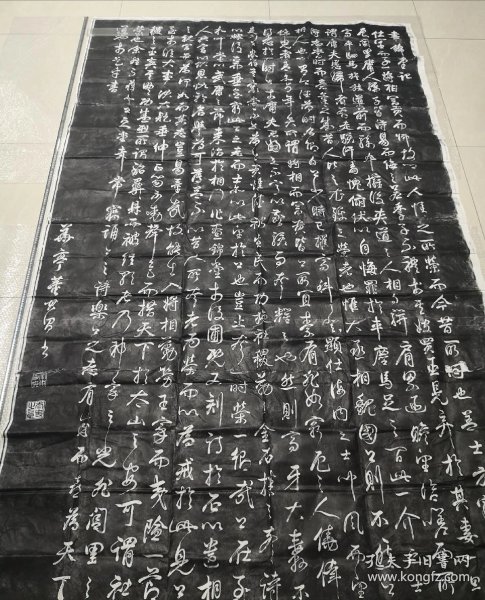 晝錦堂記
仕宦而至將相富貴而歸故鄉此人情之所榮而今昔之所同也蓋士方窮時困
阨閭里庸人孺子皆得易而侮之若季子不禮於其嫂買臣見棄於其妻一旦
高車駟馬旗旄導前而騎卒擁後夾道之人相與駢肩累迹瞻望咨嗟而所
謂庸夫愚婦者奔走駭汗羞愧俯伏以自悔罪於車塵馬足之間此一介之士
得志當時而意氣之盛昔人比之衣錦之榮者也惟大丞相魏國公則不然公
相人也世有令德為時名卿自公少時已擢高科登顯仕海內之士聞下風而望
餘光者蓋亦有年矣所謂將相而富貴皆公所宜素有非如窮阨之人僥倖
得志於一時出於庸夫愚婦之不意以驚駭而夸耀之也然則高牙大纛不
足為公榮桓圭袞冕不足為公貴惟德被生民而功施社稷勒之金石播之聲詩
以耀後世而垂無窮此公之志而士亦以此望於公也豈止夸一時而榮一鄉哉公在至
和中嘗以武康之節來治於相乃作晝錦之堂於後圃既又刻詩於石以遺相
人其言以快恩讎矜名譽為可薄蓋不以昔人所夸者為榮而以為戒於此見公
之視富貴為何如而其志豈易量哉故能出入將相勤勞王家而夷險一節
至於臨大事決大議垂紳正笏不動聲色而措天下於泰山之安可謂社
稷之臣矣其豐功盛烈所以銘彝鼎而被絃歌者乃邦家之光非閭里之
榮也余雖不獲登公之堂幸嘗竊誦公之詩樂公之志有成而喜為天下
道也於是乎書
華亭董其昌書
孔夫子旧书网
www.kongfz.com